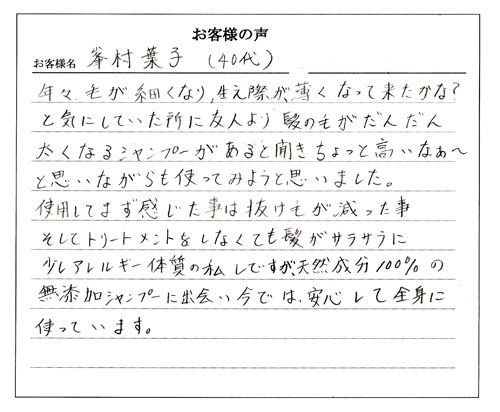 お客様の声
お客様名 峯村葉子 (40代)
年々毛が細くなり,生え際が薄くなって来たかな?
と気にしていた所に友人より髪の毛がだんだん
太くなるシャンプーがあると聞きちょっと高いなぁ〜
と思いながらも使ってみようと思いました。
使用してまず感じた事は抜け毛が減った事
そしてトリートメントをしなくても髪がサラサラに
少しアレルギー体質の私しですが天然成分100%の
無添加シャンプーに出会い今では、安心して全身に
使っています。